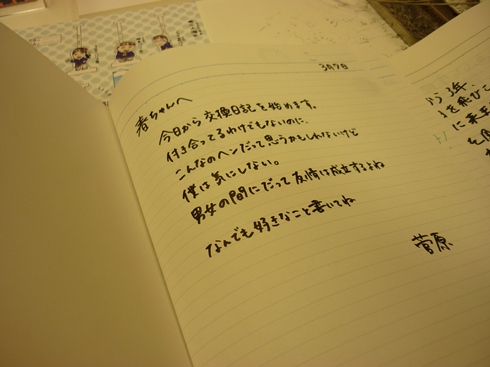 3月7日
春ちゃんへ
今日から交換日記を始めます。
付き合ってるわけでもないのに、
こんなのヘンだって思うかもしれないけど
僕は気にしない。
男女の間にだって友情は成立するよね
なんでも好きなこと書いてね
菅原